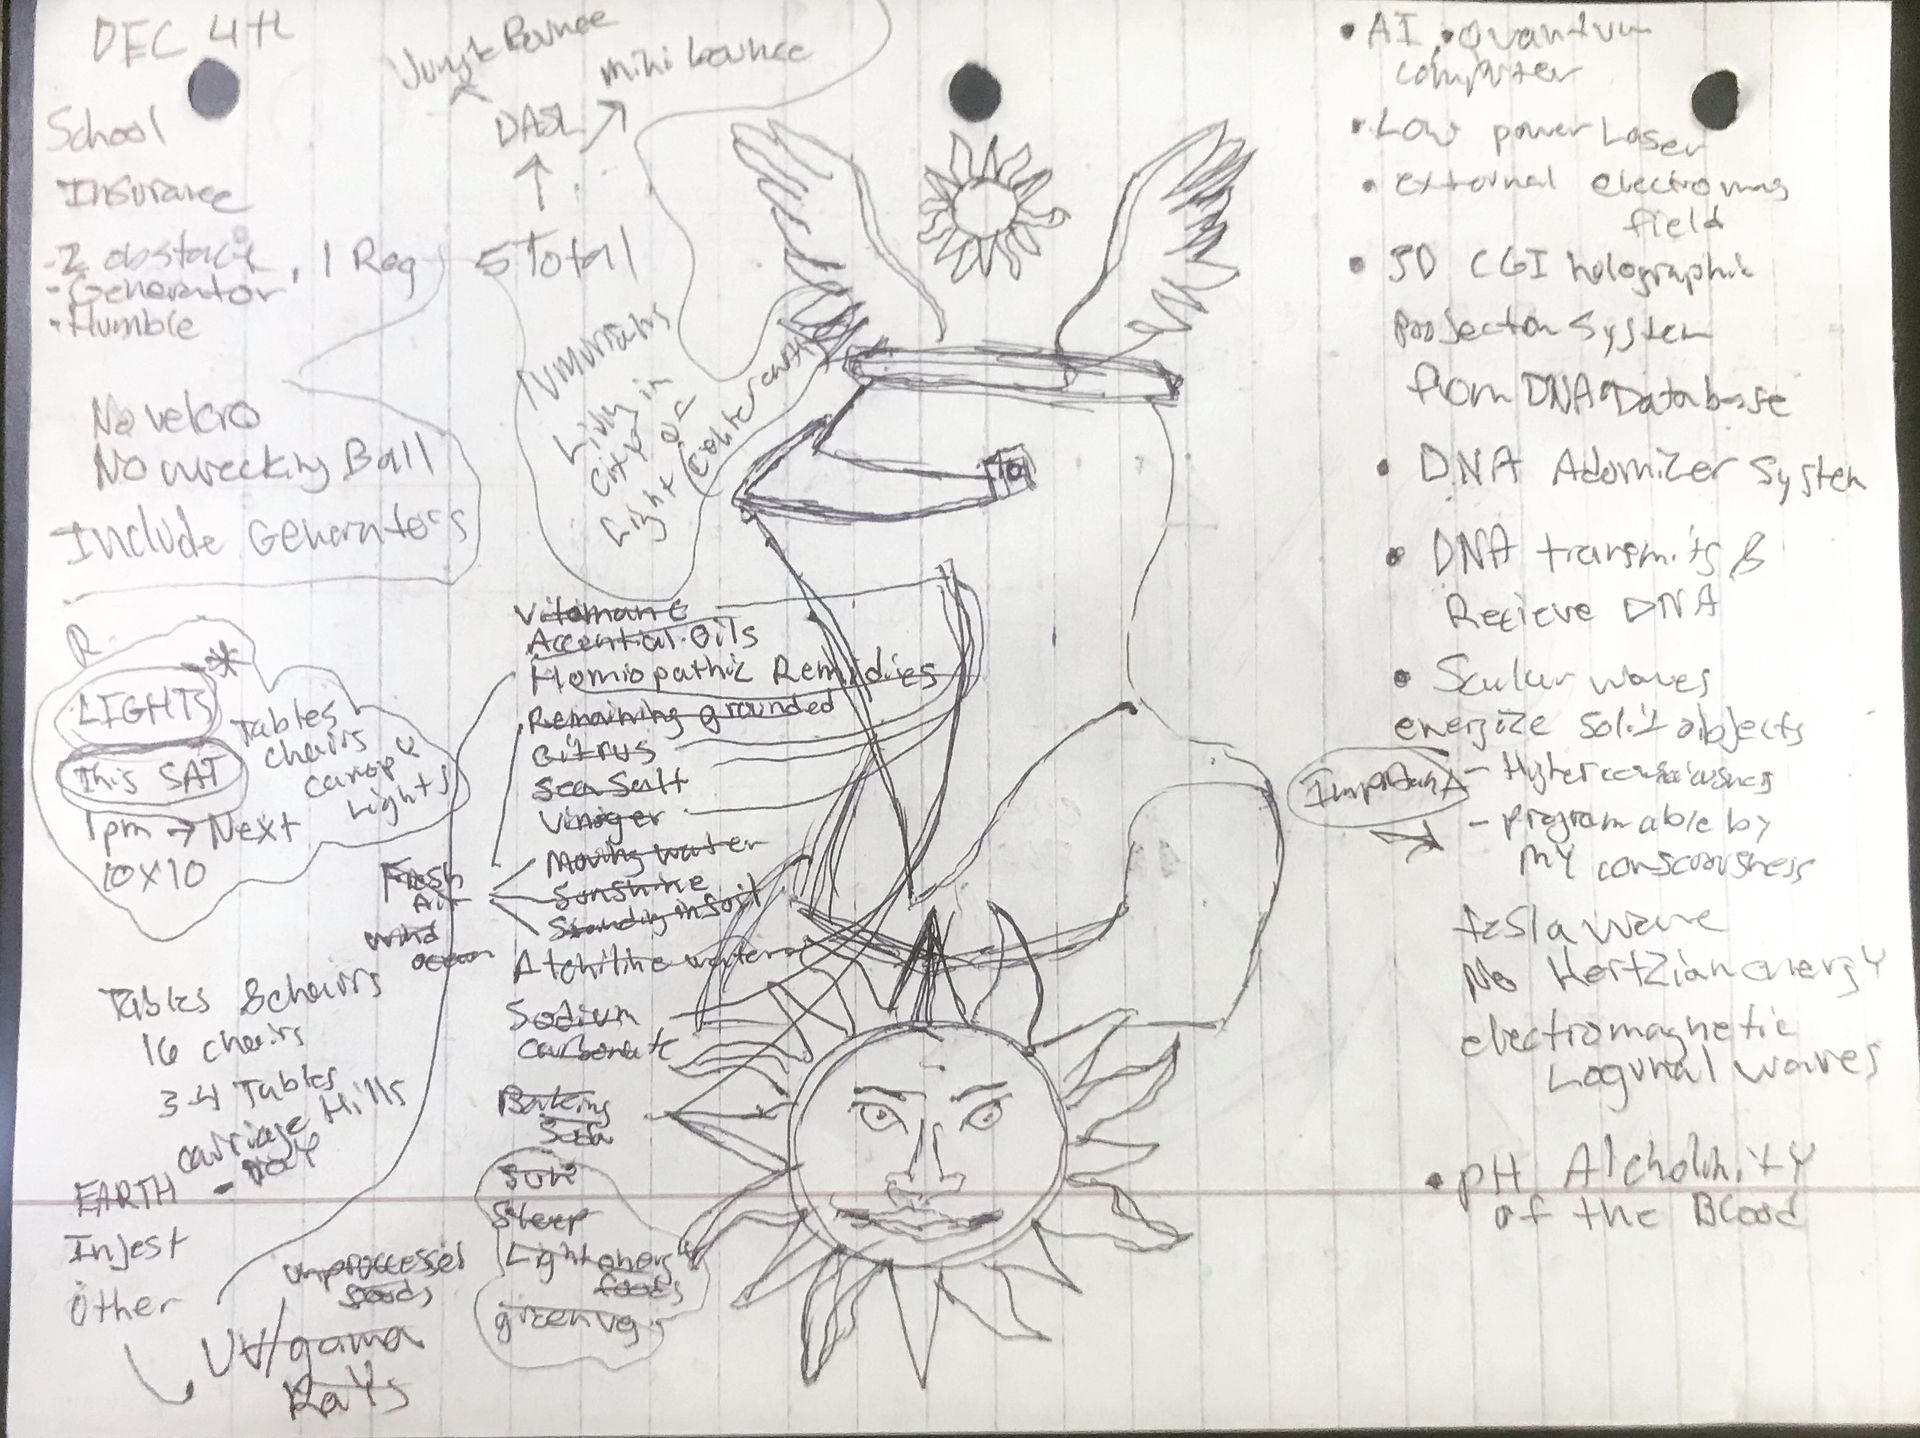 DEC 4th
mini bounce
School
Insurance
5 Total
- Generator, 1 Reg
- Humble
No velcro
No wrecking Ball
Include Generators
Light
LIGHTS *
This SAT
1pm → Next
10x10
Tables
chairs
Lights
Tables & chairs
16 chairs
3-4 Tables
carriage Hills
EARTH
Injest
Other
UV/gama
Rays
unprocessed
foods
Accential Oils
Homiopathic Remidies
Remaining grounded
Citrus
Sea Salt
Viniger
Moving water
Sunshine
Standing in Soil
Fresh
Air
wind
ocean
Sodium
carbonate
Baking
Soda
Sleep
Light energy
foods
green vegs
• AI • Quantum
computer
• Low power Laser
• external electromag
field
CGI holographic
system
from DNA Database
• DNA Adomizer System
• DNA transmits &
Recieve DNA
• Scular waves
energize solid objects
Important
- programable by
My consciousness
tesla wave
No Hertzian energy
electromagnetic
waves
• pH Alcholinity
of the Blood